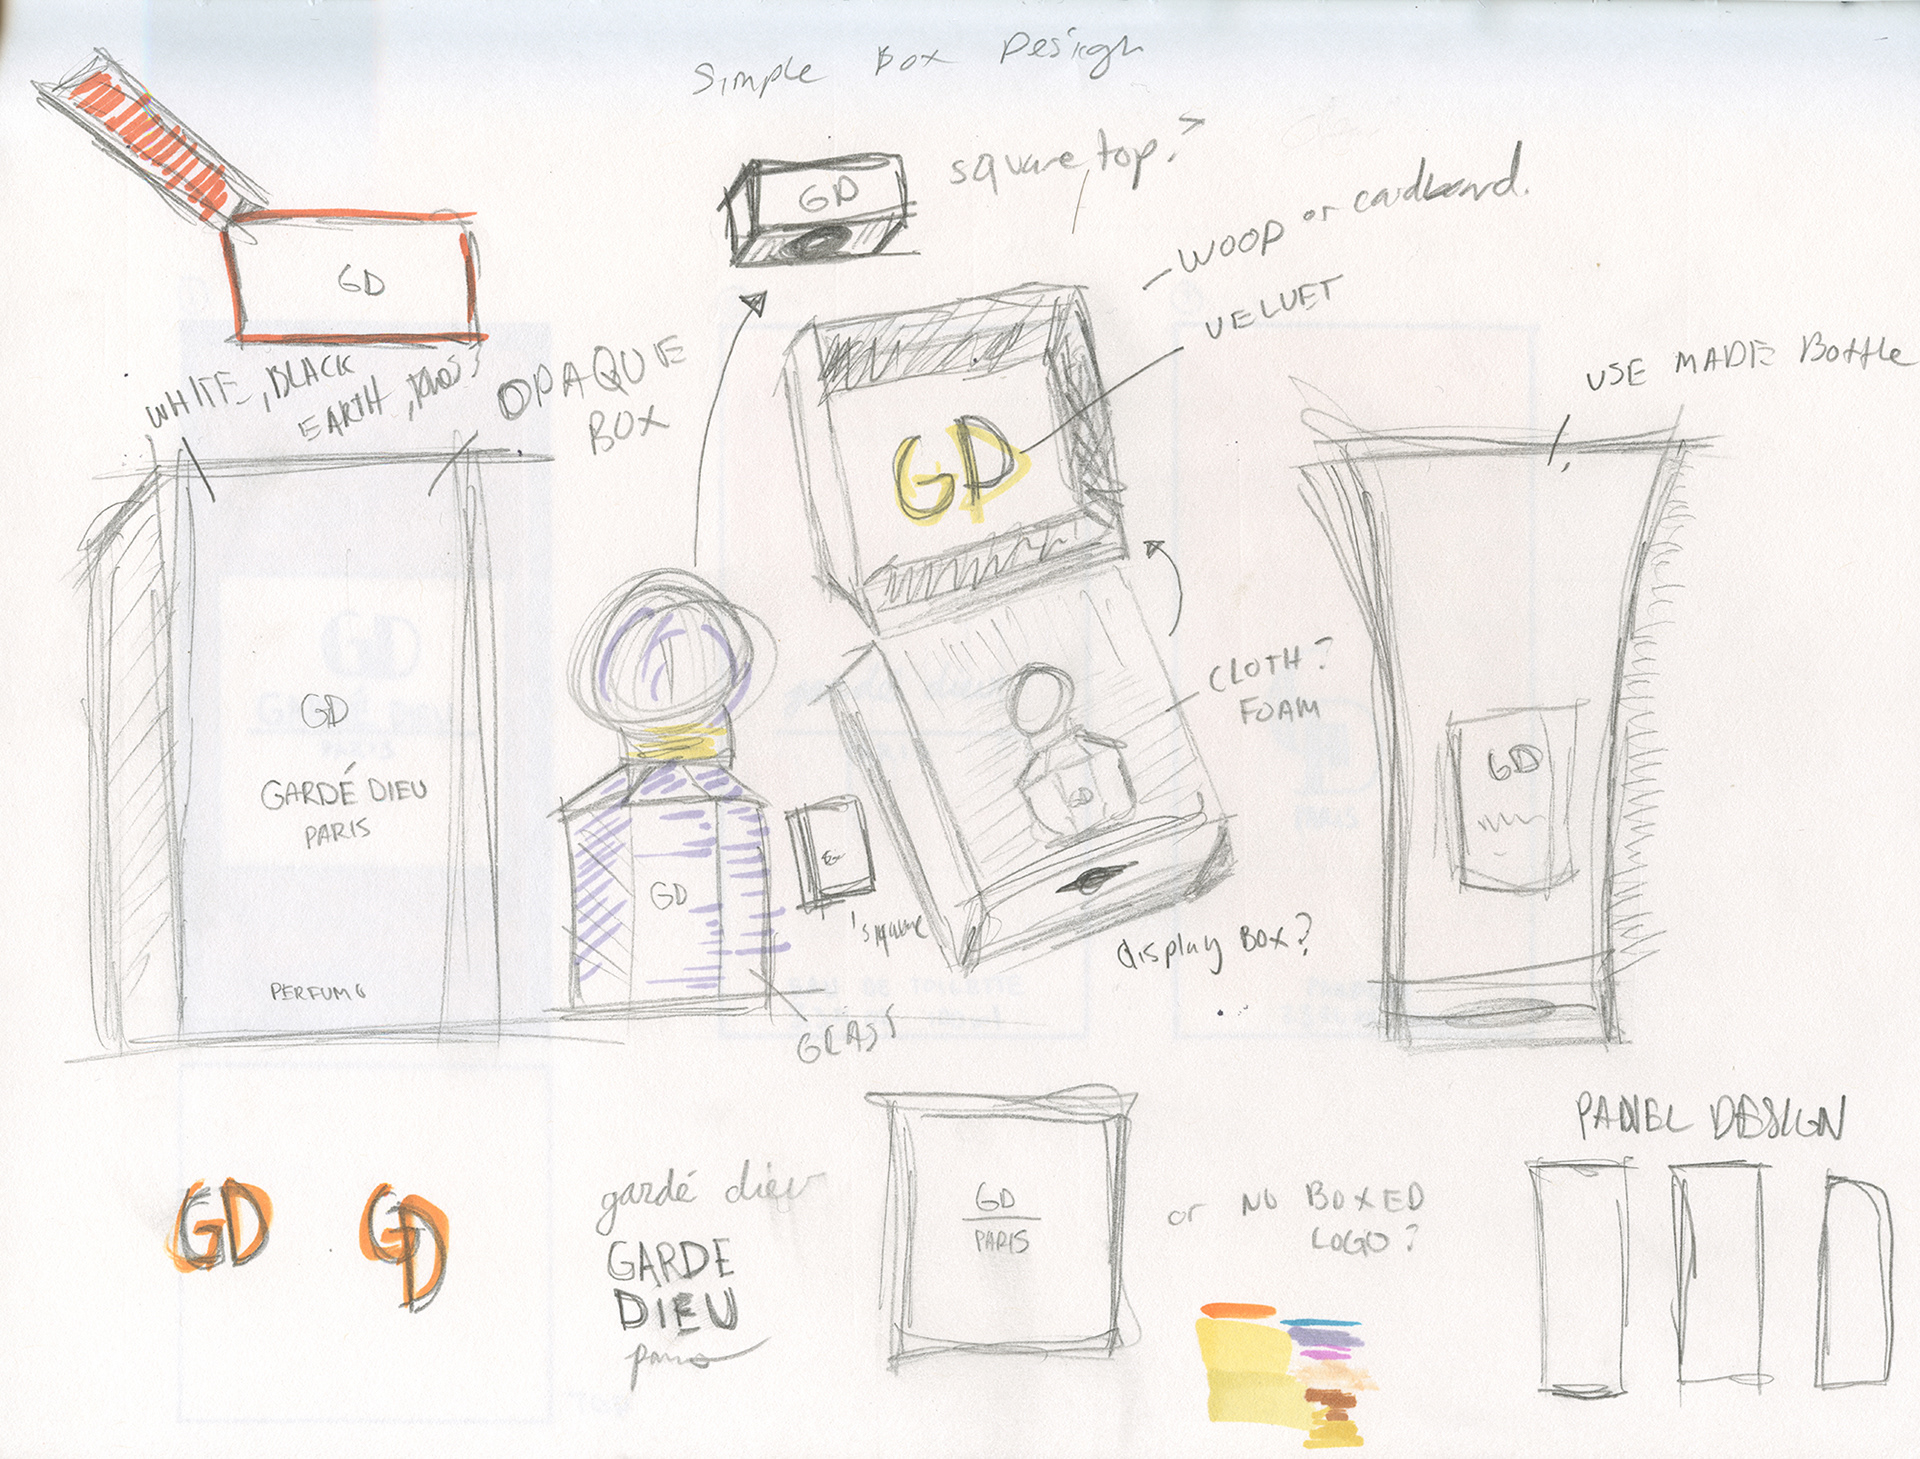 Simple Box Design
square top?
GD
WOOD or cardboard.
VELVET
GD
WHITE, BLACK
EARTH,
OPAQUE
BOX
USE MADE Bottle
GD
GD
GARDÉ DIEU
PARIS
PERFUME
GD
square
GLASS
CLOTH?
FOAM
GD
display BOX?
GD
PANEL DESIGN
GD
GD
gardé dieu
GARDE
DIEU
paris
GD
PARIS
or NO BOXED
LOGO?